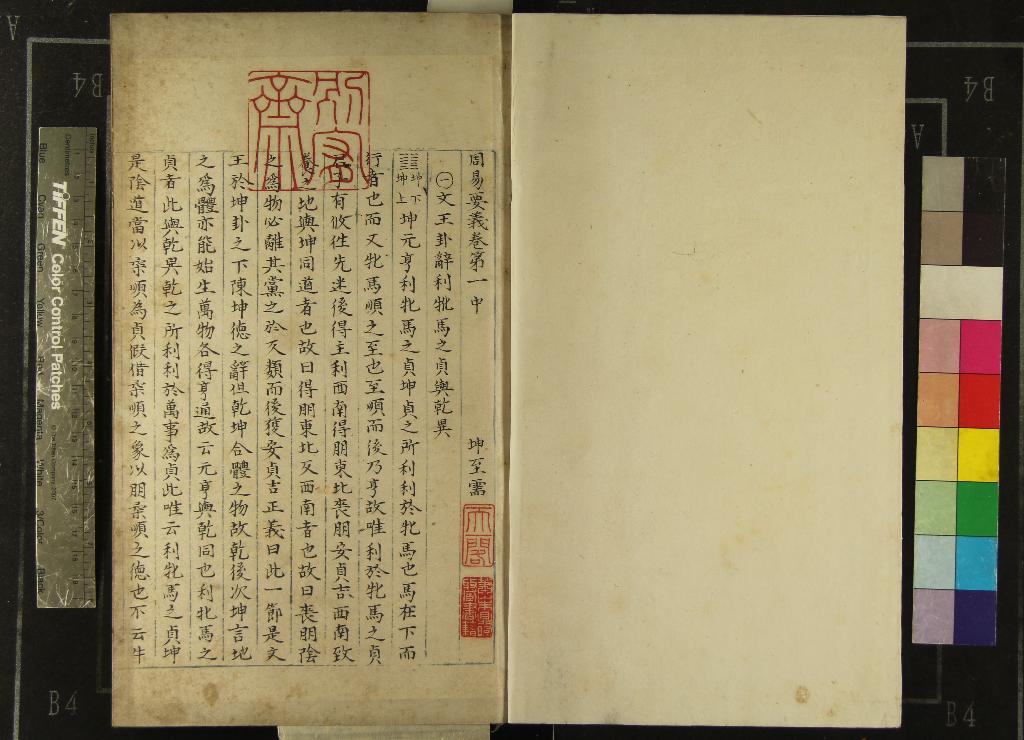 周易要義卷第一中 坤至需
㊀文王卦辭利牝馬之貞與乾異
坤下坤上 坤元亨利牝馬之貞坤貞之所利利於牝馬也馬在下而
行者也而又牝馬順之至也至順而後乃亨故唯利於牝馬之貞
君子有攸往先迷後得主利西南得朋東北喪朋安貞吉西南致
養之地與坤同道者也故曰得朋東北反西南者也故曰喪朋陰
之為物必離其黨之於反類而後獲安貞吉正義曰此一節是文
王於坤卦之下陳坤德之辭但乾坤合體之物故乾後次坤言地
之為體亦能始生萬物各得亨通故云元亨與乾同也利牝馬之
貞者此與乾異乾之所利利於萬事為貞此唯云利牝馬之貞坤
是陰道當以柔順為貞假借柔順之象以明柔順之德也不云牛
天一閣
TIFFEN Color Control Patches
Centimetres
Inches
Blue
Cyan
Green
Yellow
Red
Magenta
White
3/Color
Black
B4
B4
B4
B4
A
A